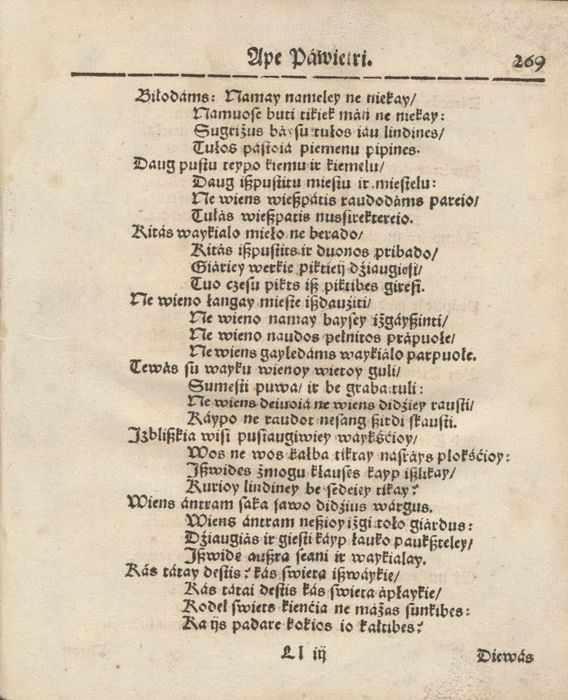 Ape Páwietri. 269
Biłodáms: Namay nameley ne niekay/
Namuose buti tikiek máń ne niekay:
Sugrižus bá su tułos iáu lindines/
Tułos pastoiá piemenu pipines.
Daug pustu teypo kiemu ir kiemelu/
Daug ißpustitu miestu ir miestelu:
Ne wiens wießpátis raudodáms pareio/
Tułás wießpatis nussirektereio.
Kitás waykialo mieło ne berado/
Kitás ißpustits ir duonos pribado/
Giáriey werkie piktieij džiaugiesi/
Tuo czesu pikts iß piktibes giresi.
Ne wieno łangay mieste ißdaužiti/
Ne wieno namay baysey ižgáyßinti/
Ne wieno naudos pełnitos prápuołe/
Ne wiens gayłedáms waykiálo parpuołe.
Tewás su wayku wienoy wietoy guli/
Sumesti puwa/ ir be graba tuli:
Ne wiens deiuoiá ne wiens didžiey rausti/
Káypo ne raudot nesang ßirdi skausti.
Jżblißkia wisi pusiaugiwiey waykśćioy/
Wos ne wos kałba tiktay násráys płokśćioy:
Jßwides žmogu kłauses kayp ißlikay/
Kurioy lindiney be sedeiey tikay?
Wiens ántram saka sawo didžius wárgus.
Wiens ántram neßioy ižgi toło giárdus:
Džiaugiás ir giesti káyp łauko paukßteley/
Jßwide außra seani ir waykialay.
Kás tátay destis? kás swieta ißwáykie/
Kás tátai destis kás swieta apłaykie/
Kodeł swiets kienćia ne mážas sunkibes:
Ka ijs padare kokios io kałtibes?
Ll iij Diewás